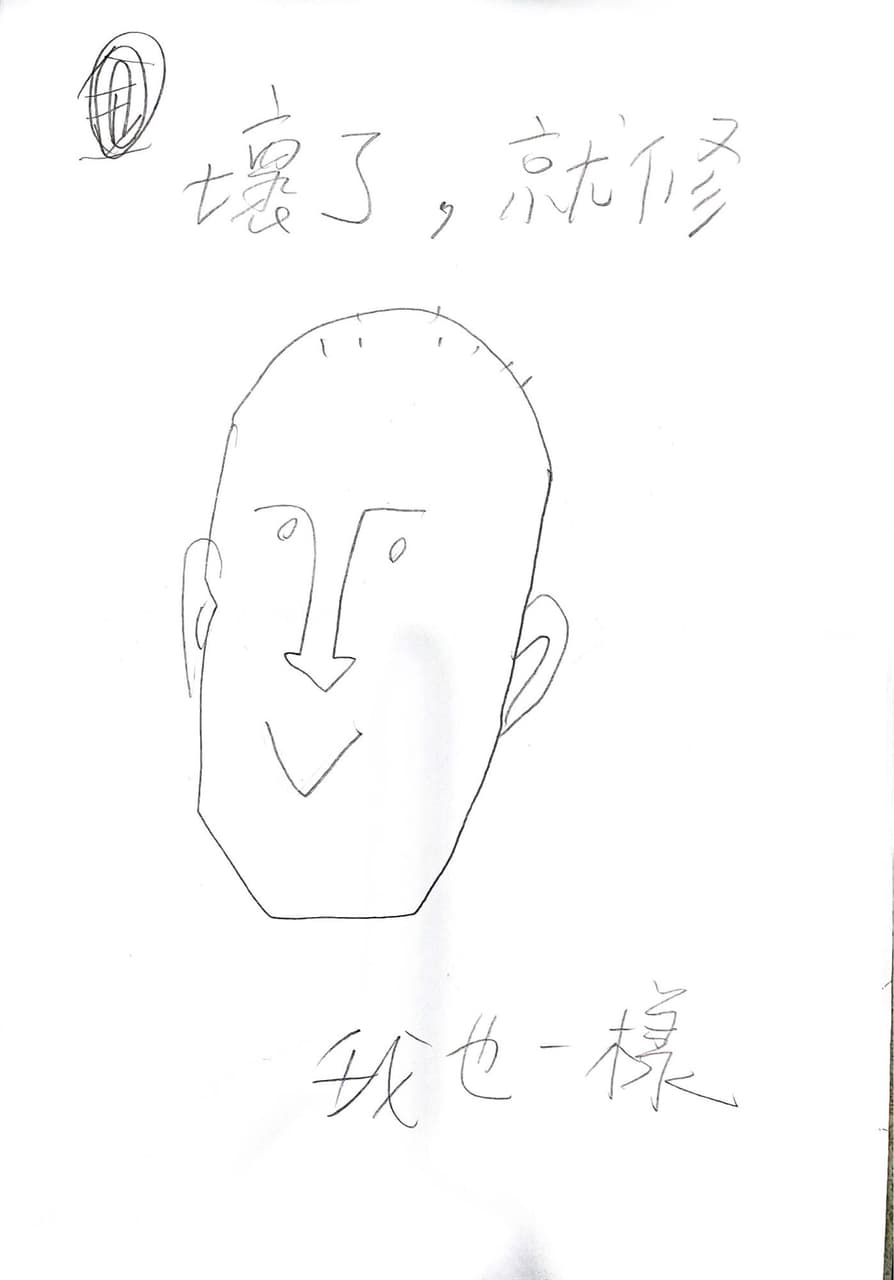 壞了，就修
我也一樣